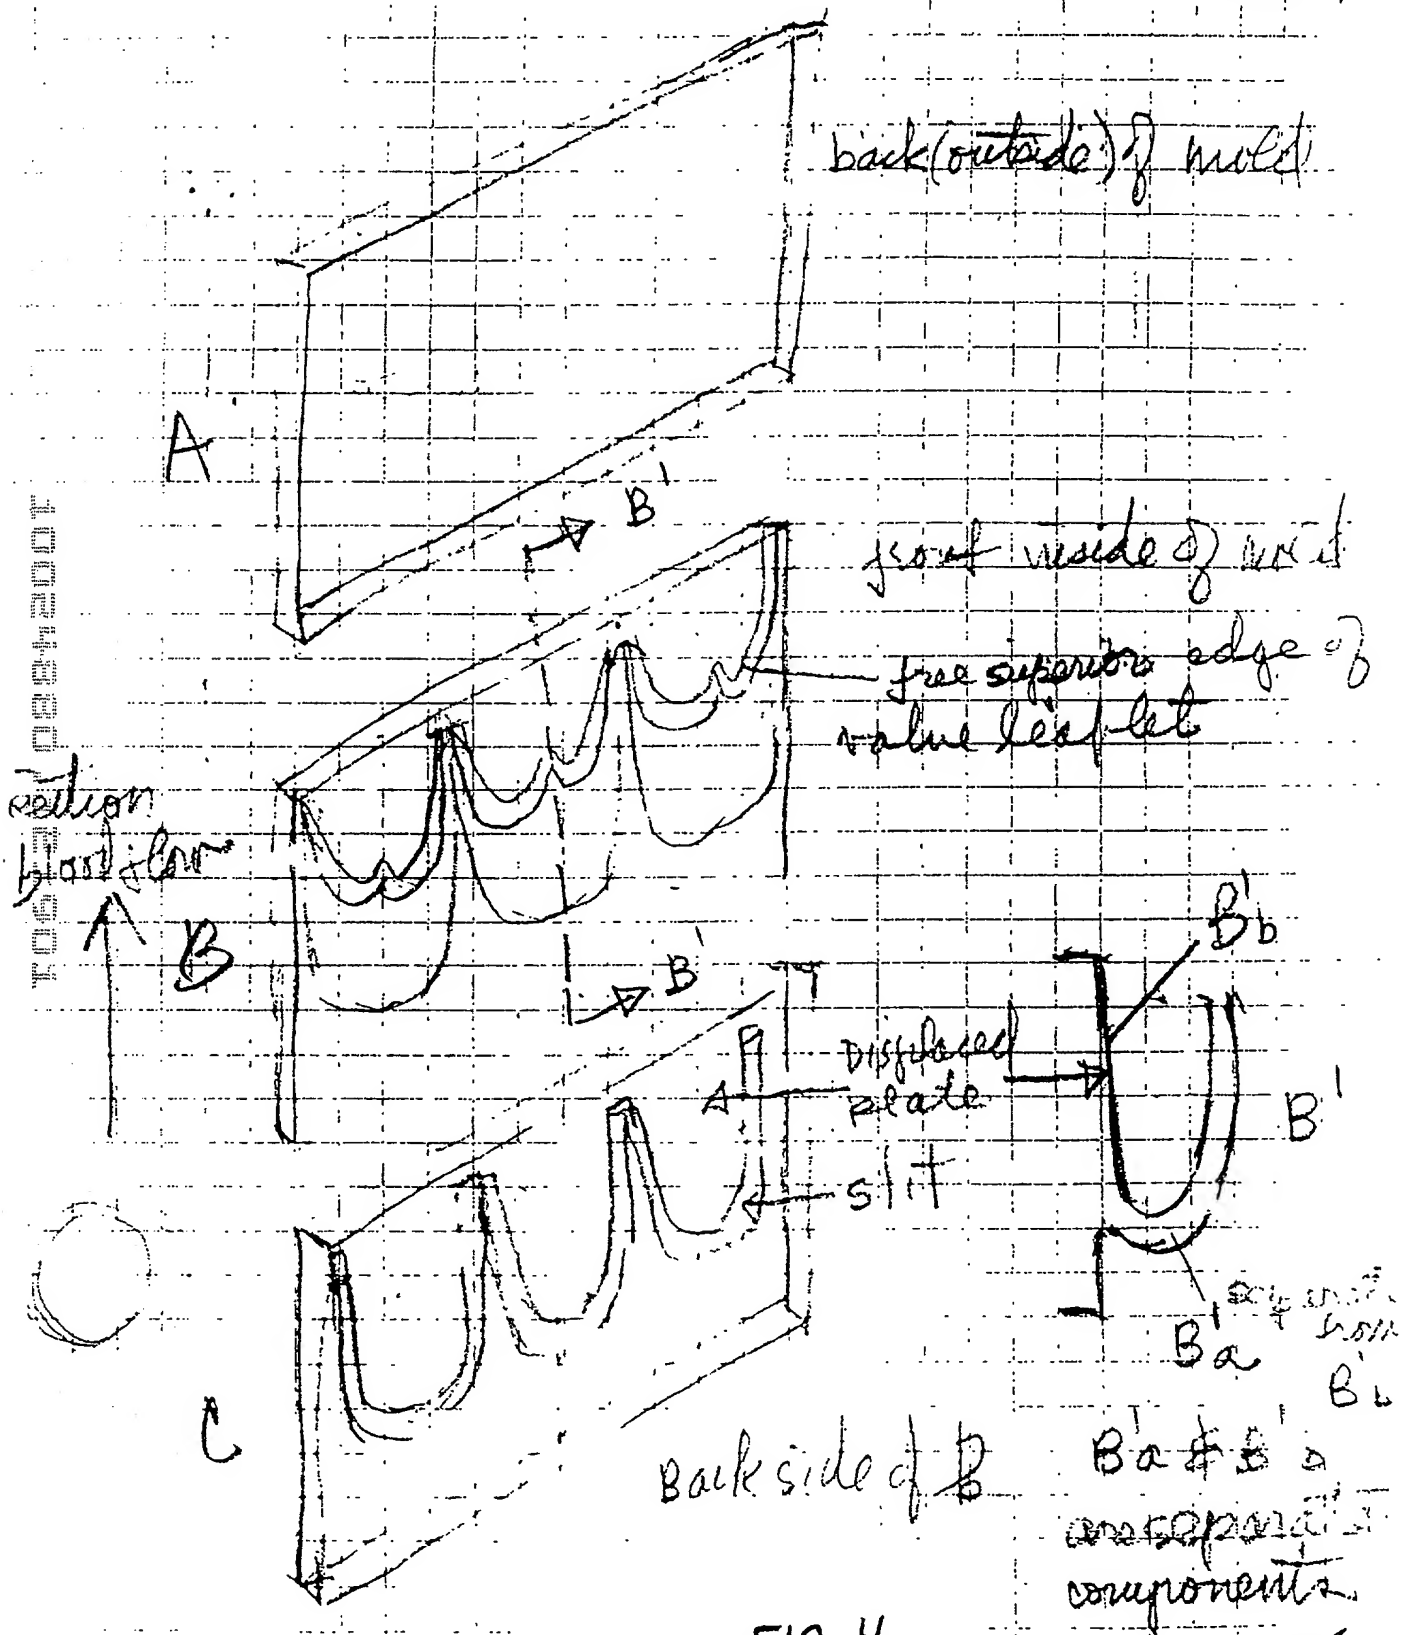 back (outside) of mold
A
B'
front inside of mold
free superior edge of
valve leaflet
blood flow
B
B'
B'b
Displaced
plate
B'
slit
B'a
from
B'b
C
Back side of B
B'a & B'b
are separate
components
FIG 4